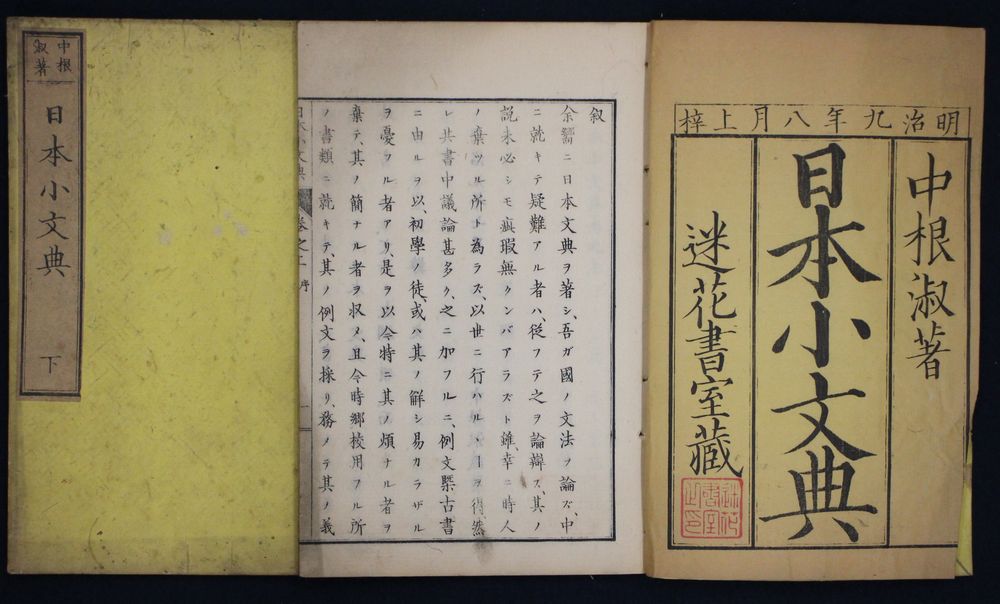 明治九年八月上梓
中根淑著
日本小文典
迷花書室藏
叙
余嚮ニ日本文典ヲ著シ、吾ガ國ノ文法ヲ論ズ、中
ニ就キテ疑難アル者ハ、從フテ之ヲ論辯ス、其ノ
説未必シモ瘢瑕無クンバアラズト雖、幸ニ時人
ノ棄ツル所ト為ラズ、以世ニ行ハルヽヿヲ得、然
レ共書中議論甚多ク、之ニ加フルニ、例文槩古書
ニ由ルヲ以、初學ノ徒、或ハ其ノ解シ易カラザル
ヲ憂フル者アリ、是ヲ以今特ニ其ノ煩ナル者ヲ
棄テ、其ノ簡ナル者ヲ収メ、且今時郷校用フル所
ノ書類ニ就キテ、其ノ例文ヲ採リ、務メテ其ノ義
日本小文典 卷之上 序 一
中根
淑著
日本小文典 下